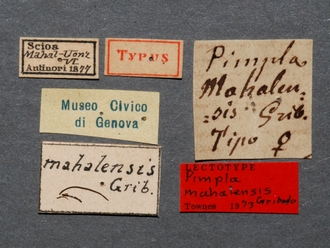 Scioa
Mahal-Uonz
VI.
Antinori 1877
TYPUS
Pimpla
Mahalen
sis Grib.
Tipo ♀
Museo Civico
di Genova
mahalensis
Grib.
LECTOTYPE
Pimpla
mahalensis
Townes 1973 Gribodo